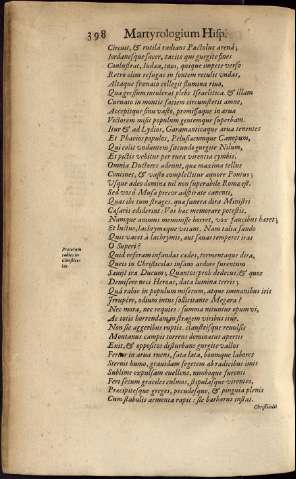 398 Martyrologium Hisp.
Circuit, & rutilâ radians Pactolus arenâ;
Iordanesque sacer, tacito qui gurgite fines
Conlustrat, Iudæa, tuos, quique impete verso
Retro olim refugas in fontem retulit vndas,
Altaque frænato collegit flumina riuo,
Qua gressum intulerat plebs Israëlitica, & illam
Curuato in montis faciem circumstetit amne,
Accepitque sinu vasto, promissaque in arua
Victorem misit populum gentemque superbam.
Itur & ad Lydios, Garamanticaque arua tenentes
Et Pharios populos, Pelusiacumque Canopum,
Qui colit vndantem fœcundo gurgite Nilum,
Et pictis vehitur per rura virentia cymbis.
Omnia Ductores adeunt, quæ maxima tellus
Continet, & vasto complectitur aequore Pontus;
Vsque adeo domina nil non superabile Roma est.
Sed vos ô Musæ precor adspirate canenti,
Quas ibi tum strages, quæ funera dira Ministri
Cæsaris ediderint: Vos hæc memorare potestis,
Namque animus meminisse horret, vix fancibus hæret;
Et luctus, lacrymæque vetant. Nam talia fando
Quis vacet à lacrymis, aut sæuas temperet iras
O Superi?
Quid referam infandas cædes, tormentaque dira,
Queis in Christiadas infano ardore furentem
Sæuijt ira Ducum; Quantos proh dedecus, & quos
Demisere neci Heroas, data lumina terris;
Quâ rabie in populum miserum, atque immanibus iris
Irrupêre, odium intus sollicitante Megæra?
Nec mora, nec requies: summa nituntur opum vi,
Ac totis horrendam in stragem viribus itur.
Non sic aggeribus ruptis
Montanus campis torrens dominatur apertis
Exit, & oppositas disturbans gurgite valles
Fertur in arua ruens, sata læta, boumque labores
Sternit humo, grauidam segetem abradicibus imis
Sublime expulsam euellens, nimboque furenti
Fert secum graciles culmos, stipulasque virentes,
Præcipitesque greges, pecudesque, & pinguia plenis
Cum stabulis armenta rapit: sic barbarus instat
Præcurum
in
Christia-
dis
Christiadis